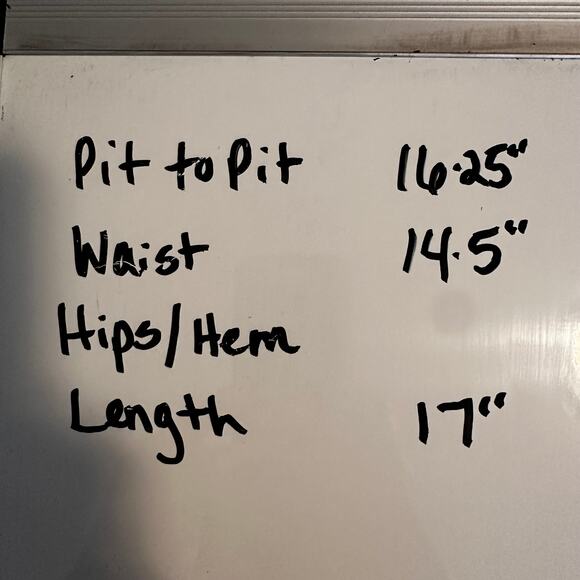 Pit to Pit 16.25"
Waist 14.5"
Hips/Hem
Length 17"